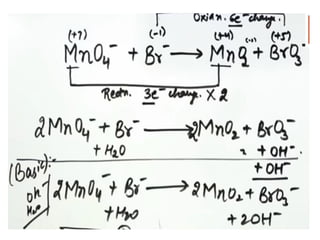 Oxidn. 6e⁻ change.
(+7) (-1) (+4) (+5)
MnO₄⁻ + Br⁻ → MnO₂ + BrO₃⁻
Redn. 3e⁻ change. × 2
2MnO₄⁻ + Br⁻ → 2MnO₂ + BrO₃⁻
+ H₂O + OH⁻
+ OH⁻
(Basic):
OH⁻
H₂O
2MnO₄⁻ + Br⁻ → 2MnO₂ + BrO₃⁻
+ H₂O + 2OH⁻